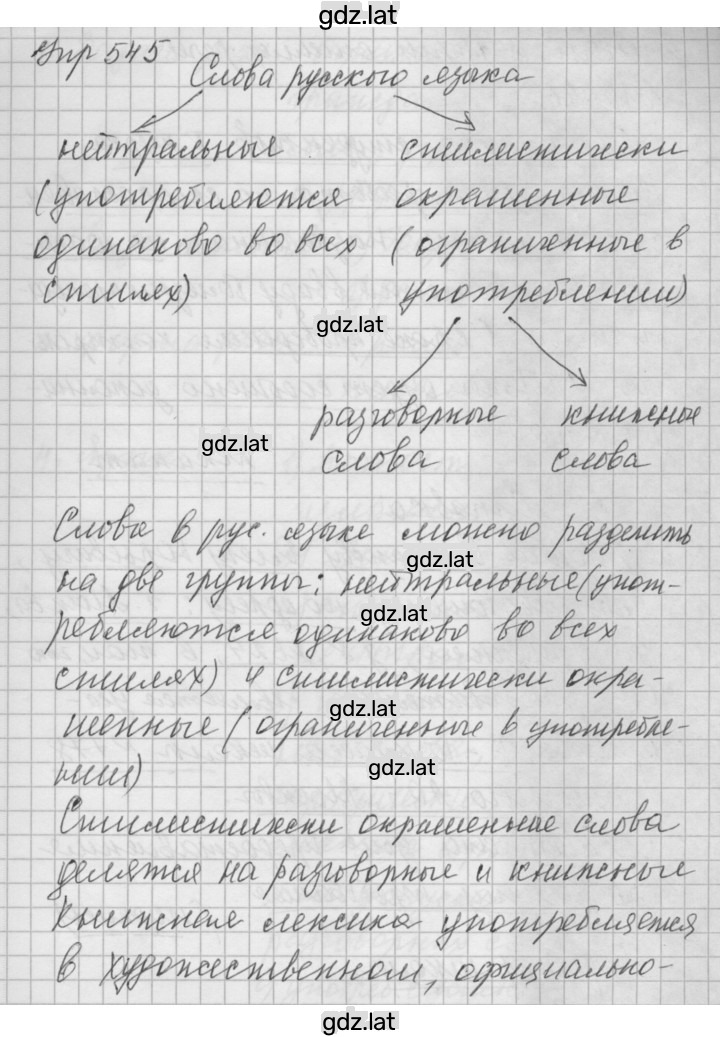 gdz.lat
Упр 545
Слова русского языка
нейтральные стилистически
(употребляются окрашенные
одинаково во всех (ограниченные в
стилях) употреблении)
gdz.lat
разговорные книжные
gdz.lat
слова слова
Слова в рус. языке можно разделить
gdz.lat
на две группы: нейтральные (упот-
gdz.lat
ребляются одинаково во всех
стилях) и стилистически окра-
gdz.lat
шенные (ограниченные в употребле-
нии)
gdz.lat
Стилистически окрашенные слова
делятся на разговорные и книжные
Книжная лексика употребляется
в художественном, официально-
gdz.lat